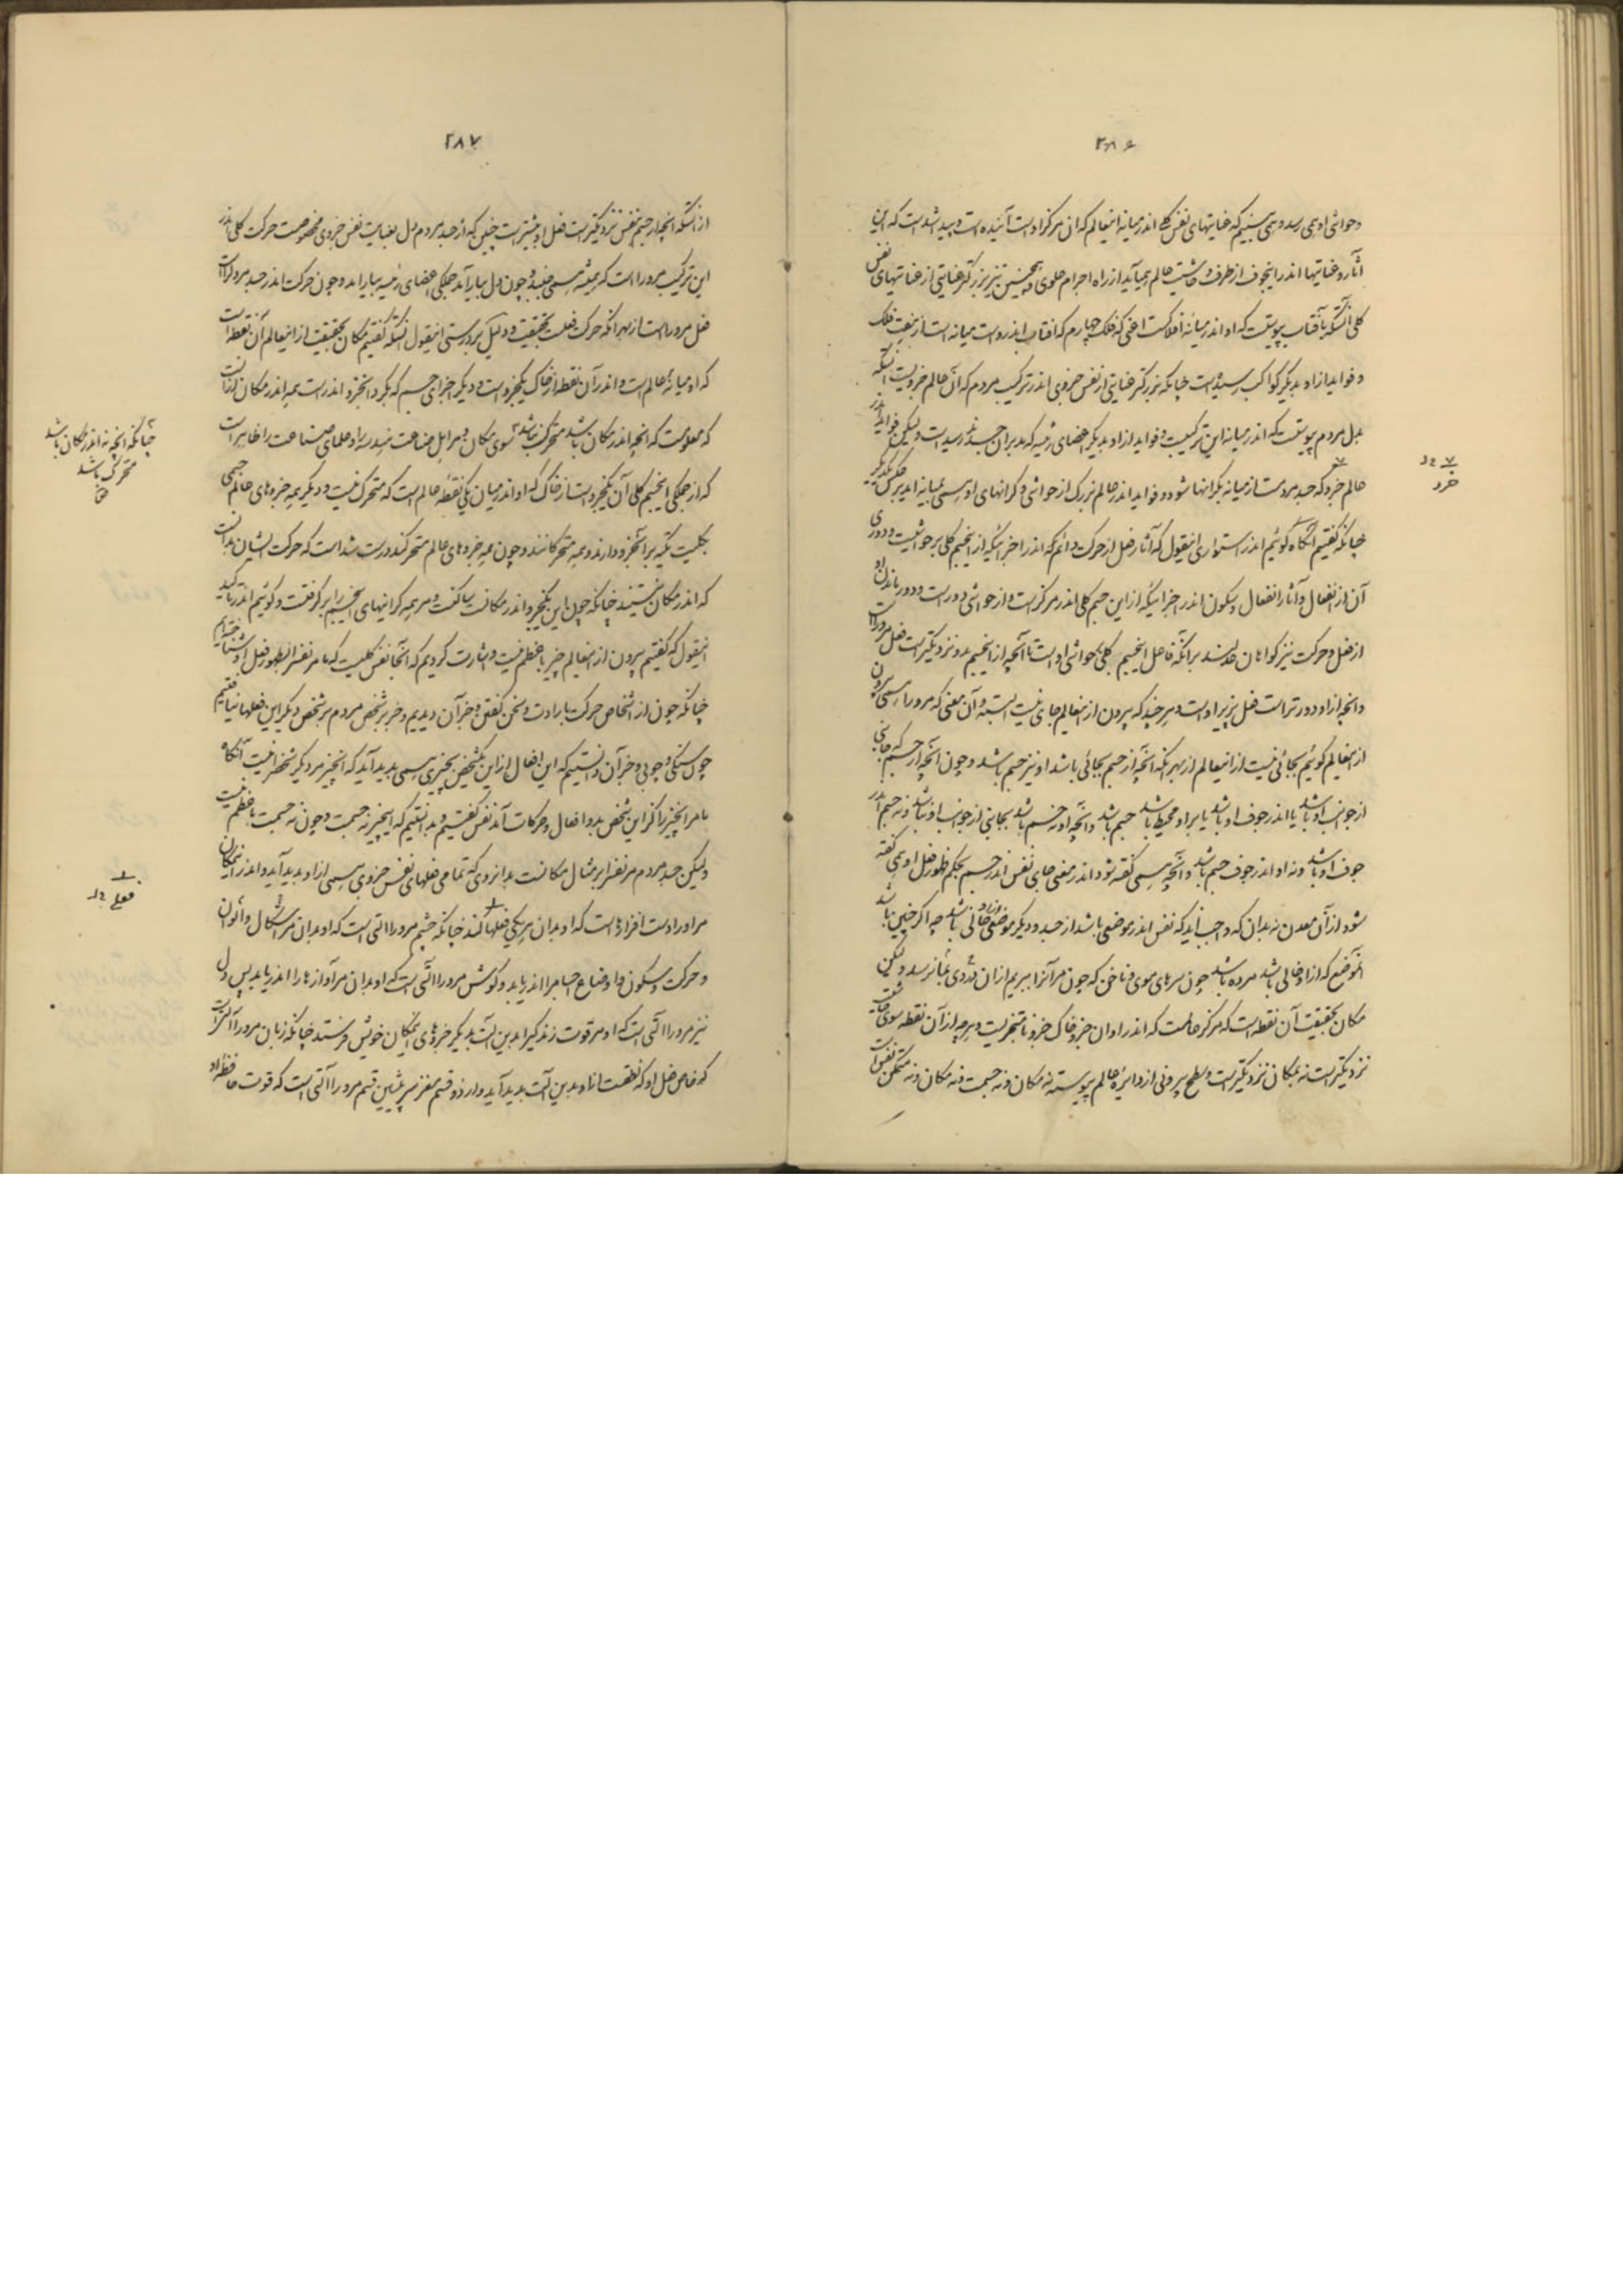 ۲۸۶
و حواشی او همی رسد و همی بینیم که عنایتهای نفس کلی اندر میانه اینعالم که آن مرکز او است آینده است و پیدا شد است که این
آثار و عنایتها اندر اینجوف از طرف و حاشیت عالم همیآید از راه اجرام علوی و همچنین نیز بزرگتر عنایتی از عنایتهای نفس
کلی آنستکه بآفتاب پیوستست که او اندر میانه افلاکست اعنی که فلک چهارم که آفتاب اندروست میانه است از هفت فلک
و فواید از او بدیگر کواکب رسیده است چنانکه بزرگتر عنایتی از نفس جزوی اندر ترکیب مردم که آن عالم جزویست آنستکه
بدل مردم پیوستست که اندر میانه این ترکیبست و فواید از او بدیگر اعضای رئیسه که مدبران جسدند رسیدست ولیکن فواید اندر
عالم خرد که جسد مردمست از میانه بکرانها شود و فواید اندر عالم بزرگ از حواشی و کرانهای او سی بمیانه آید بر عکس یکدیگر
چنانکه گفتیم آنگاه گوئیم اندر استواری اینقول که آثار فعل از حرکت دائم که اندر اجزائیکه از این جسم کلی بر حواشیست و دوری
آن از انفعال و آثار انفعال و سکون اندر اجزائیکه از این جسم کلی اندر مرکز است و از حواشی دور است و دور ماندن او
از فعل و حرکت نیز گواهان عدلند بر آنکه فاعل این جسم کلی حواشی او است تا آنچه از این جسم بدو نزدیکتر است فعل مرو راست
و آنچه از او دورتر است فعل پذیر او است و هر چند که بیرون از اینعالم جای نیست البته و آن معنی که مرو را سی بیرون
از اینعالم گوئیم بجائی نیست از اینعالم از بهر آنکه آنچه از جسم بجائی باشد او نیز جسم باشد و چون آنچه از جسم که بجائی
از جوانب او باشد یا اندر جوف او باشد یا بر او محیط باشد جسم باشد و آنچه او نه جسم باشد بجانبی از جوانب او نباشد و نه جسم اندر
جوف او باشد و نه او اندر جوف جسم باشد و آنچه سی گفته شود اندر معنی جای نفس اندر جسم بحکم ظهور فعل او همی گفته
شود از آن معدن نه بدان که واجب آید که نفس اندر موضعی باشد از جسد و دیگر موضعی از او خالی باشد چه اگر چنین باشد
آنموضع که از او خالی باشد مرده باشد چون سرهای موی و ناخن که چون مر آنرا ببریم از آن دردی بما نرسد ولیکن
مکان بحقیقت آن نقطه است که مرکز عالمست که اندر او آن جزو خاک جزو نامتجزیست و هر چه از آن نقطه سوی حاشیت
نزدیکتر است نه بمکان نزدیکتر است و سطح بیرونی از دائره عالم پیوسته نه مکان و نه جسمست و نه مکان و نه متمکن نفس است
۷ خرد
۲۸۷
از آنستکه آنچه از جسم بنفس نزدیکتر است فعل او بیشتر است چنین که از جسد مردم دل بعنایت نفس جزوی مخصوصست حرکت کلی اندر
این ترکیب مرو راست که همیشه سی جنبد و چون دل بیارآمد جملگی اعضای رئیسه بیارامد و چون حرکت اندر جسد مردل راست
فعل مرو راست از بهر آنکه حرکت فعلست بحقیقت و دلیل بر درستی اینقول آنستکه گفتیم مکان بحقیقت از اینعالم آن نقطه است
که او میانه عالم است و اندر آن نقطه از خاک یکجزو است و دیگر اجزای جسم که بگرد آنجزو اندر است همه اندر مکان ارزانست
که معلومست که آنچه اندر مکان باشد متحرک نباشد سوی مکان و هر اهل صناعت هندسه را و علمای صناعت را ظاهر است
که از جملگی این جسم کلی آن یکجزو است از خاک که او اندر میان یکی نقطه عالم است که متحرک نیست و دیگر همه جزوهای عالم جسمی
بکلیت تکیه بر آنجزو دارند و همه متحرکانند و چون همه جزوهای عالم متحرکند درست شد است که حرکت ایشان بدانست
که اندر مکان نیستند چنانکه چون این یکجزو اندر مکانست ساکنست و مر همه کرانهای این جسم را بر گرفتست و گوئیم اندر تأکید
اینقول که گفتیم بیرون از اینعالم چیزی با عظم نیست و اشارت کردیم که آنجا نفس کلیست که ما مر نفس را بظهور فعل او شناخته‌ایم
چنانکه چون از اشخاص حرکت بارادت و سخن گفتن و جز آن دیدیم و جز بر شخص مردم بر شخص دیگر این فعلها نیافتیم
چون سنگی و چوبی و جز آن دانستیم که این افعال از این یکشخص بچیزی سی پدید آید که آنچیز مر دیگر شخص را نیست آنگاه
ما مر آنچیز را کز این شخص بدو افعال و حرکات آمد نفس گفتیم و بدانستیم که اینچیز نه جسمست و چون نه جسمست با عظم نیست
ولیکن جسد مردم مر نفس را بر مثال مکانست بدانروی که تمامی فعلهای نفس جزوی سی از او پدید آید و اندر اینمکان
مر او را دست افزارهاست که او بدان هر یکی فعلها کند چنانکه چشم مرو را آلتی است که او بدان مر اشکال و الوان
و حرکت و سکون و اوضاع اجسام را اندر یابد و گوش مرو را آلتی است که او بدان مر آوازها را اندر یابد پس دل
نیز مرو را آلتی است که او مر قوت زندگی را بدین آلت بدیگر جزوهای اینمکان خویش فرستد چنانکه زبان مرو را آلتیست
که خاص فعل او که نطقست از او بدین آلت پدید آید و از دو قسم مغز سر پیشین قسم مرو را آلتی است که قوت حافظه او
چنانکه آنچه نه اندر مکان باشد
متحرک باشد
فعلی